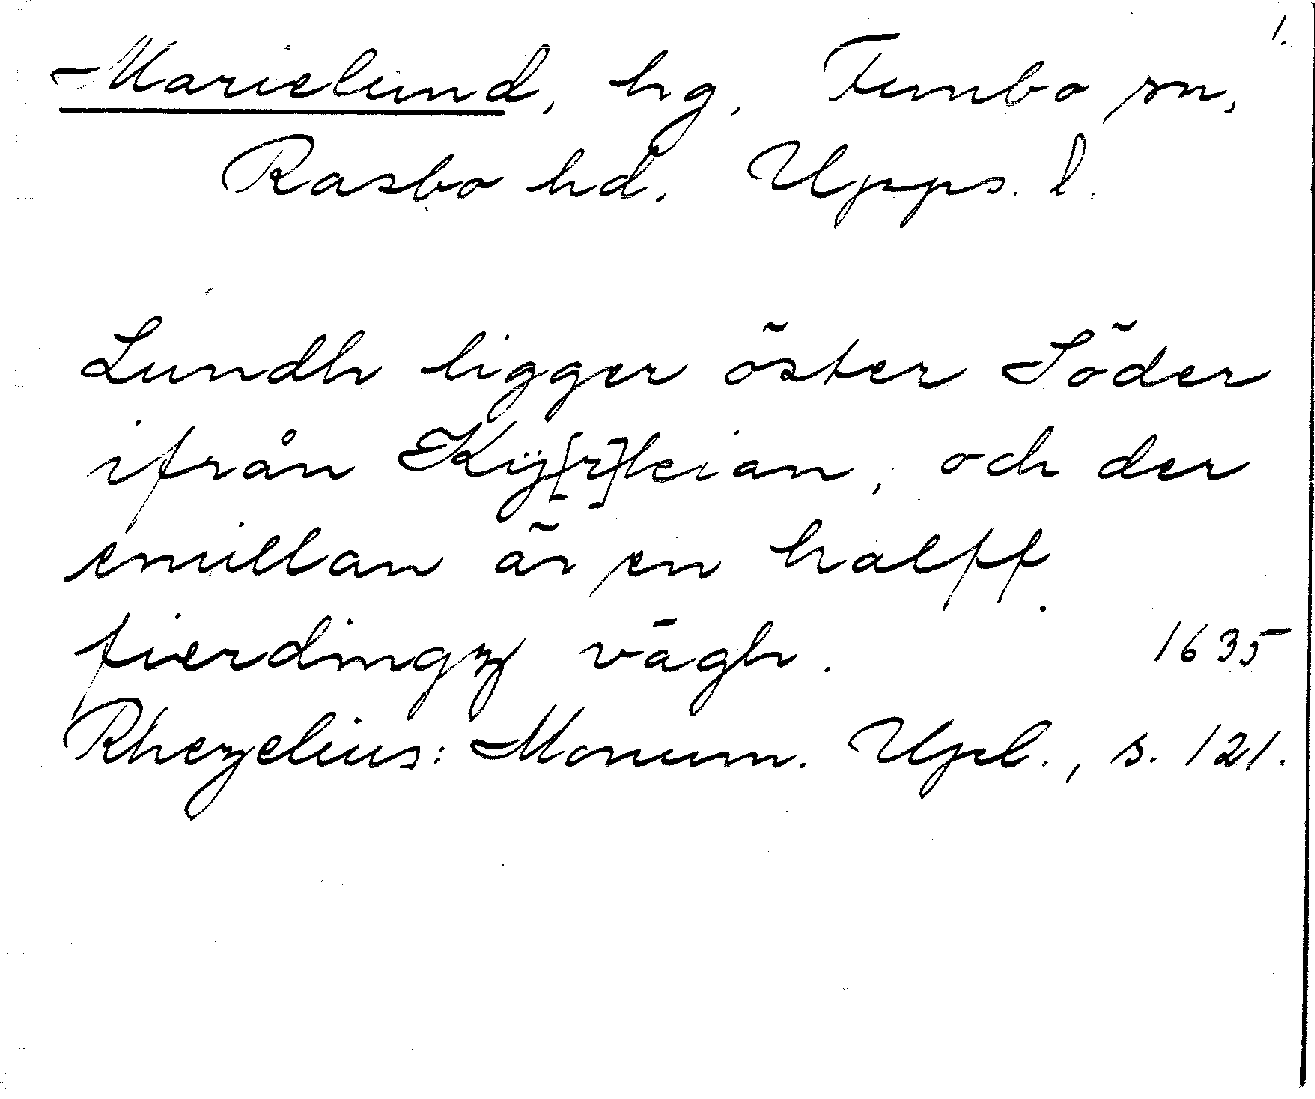 1.
Marielund, hg, Funbo sn,
Rasbo hd. Upps. l.
Lundh ligger öster Söder
ifrån Kÿ[r]keian, och der
emillan är en halff
fierdingz vägh. 1635
Rhezelius: Monum. Upl., s. 121.